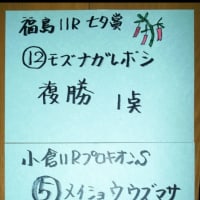 福島11R 七夕賞
⑫モズナガレボシ
複勝 1点
小倉11RプロキオンS
⑤メイショウウズマサ